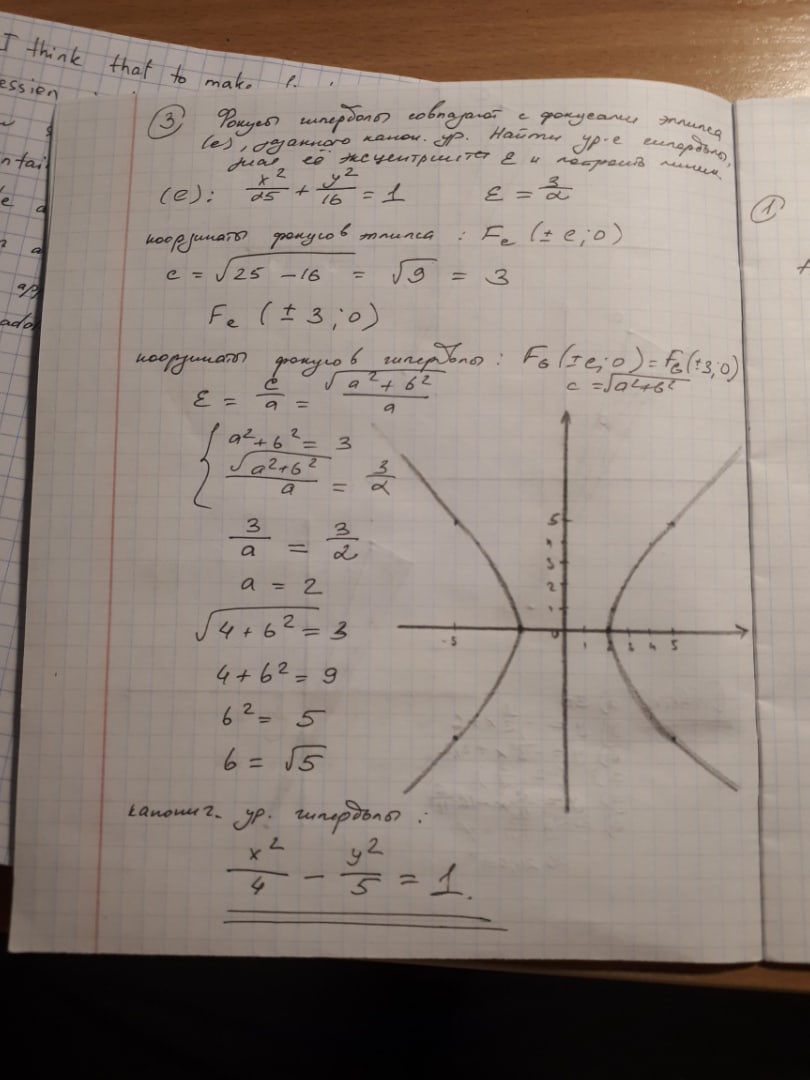 I think that to make
ession
ntai
ap
ado
③ Фокусы гиперболы совпадают с фокусами эллипса
(e), заданного канон. ур. Найти ур-е гиперболы,
зная её эксцентриситет ε и построить линии.
(e): x²/25 + y²/16 = 1 ε = 3/2
координаты фокусов эллипса : Fe (± c; 0)
c = √(25 - 16) = √9 = 3
Fe (± 3; 0)
координаты фокусов гиперболы : Fб (±c; 0) = Fб (±3; 0)
c = √(a²+b²)
ε = c/a = √(a² + b²)/a
{ a² + b² = 3
√(a²+b²)/a = 3/2
3/a = 3/2
a = 2
√(4 + b²) = 3
4 + b² = 9
b² = 5
b = √5
5
4
3
2
1
-5 0 1 2 3 4 5
канонич. ур. гиперболы :
x²/4 - y²/5 = 1.
①